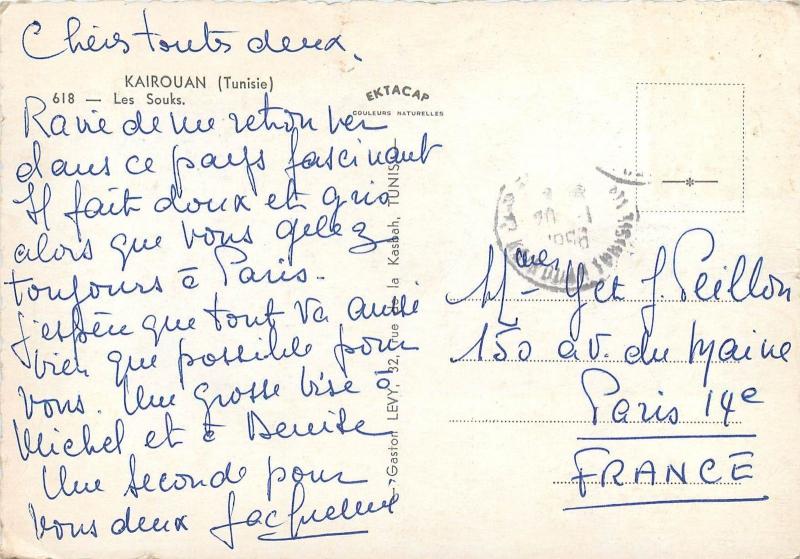 Chères toutes deux,
KAIROUAN (Tunisie)
618 — Les Souks.
EKTACAP
COULEURS NATURELLES
Ravie de me retrouver
dans ce pays fascinant
Il fait doux et gris
alors que vous gelez
toujours à Paris.
j'espère que tout va aussi
bien que possible pour
vous. Une grosse bise à
Michel et à Denise
Une seconde pour
vous deux Jacqueline
Gaston LEVY, 32, rue de la Kasbah, TUNIS
Mmes Y et J. Peillon
150 av. du Maine
Paris 14e
FRANCE